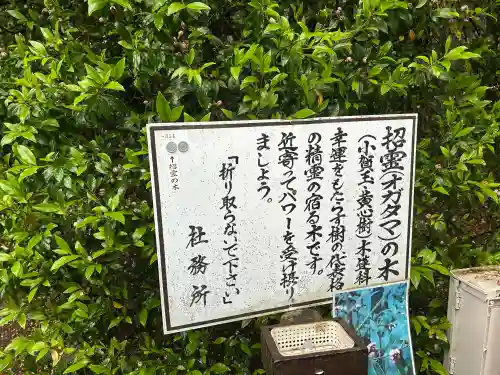 招霊(オガタマ)の木
(小賀玉・黄心樹・木蓮科)
幸運をもたらす樹の代表格
の精霊の宿る木です。
近寄ってパワーを受け採り
ましょう。
「折り取らないで下さい」
社務所
↑招霊の木